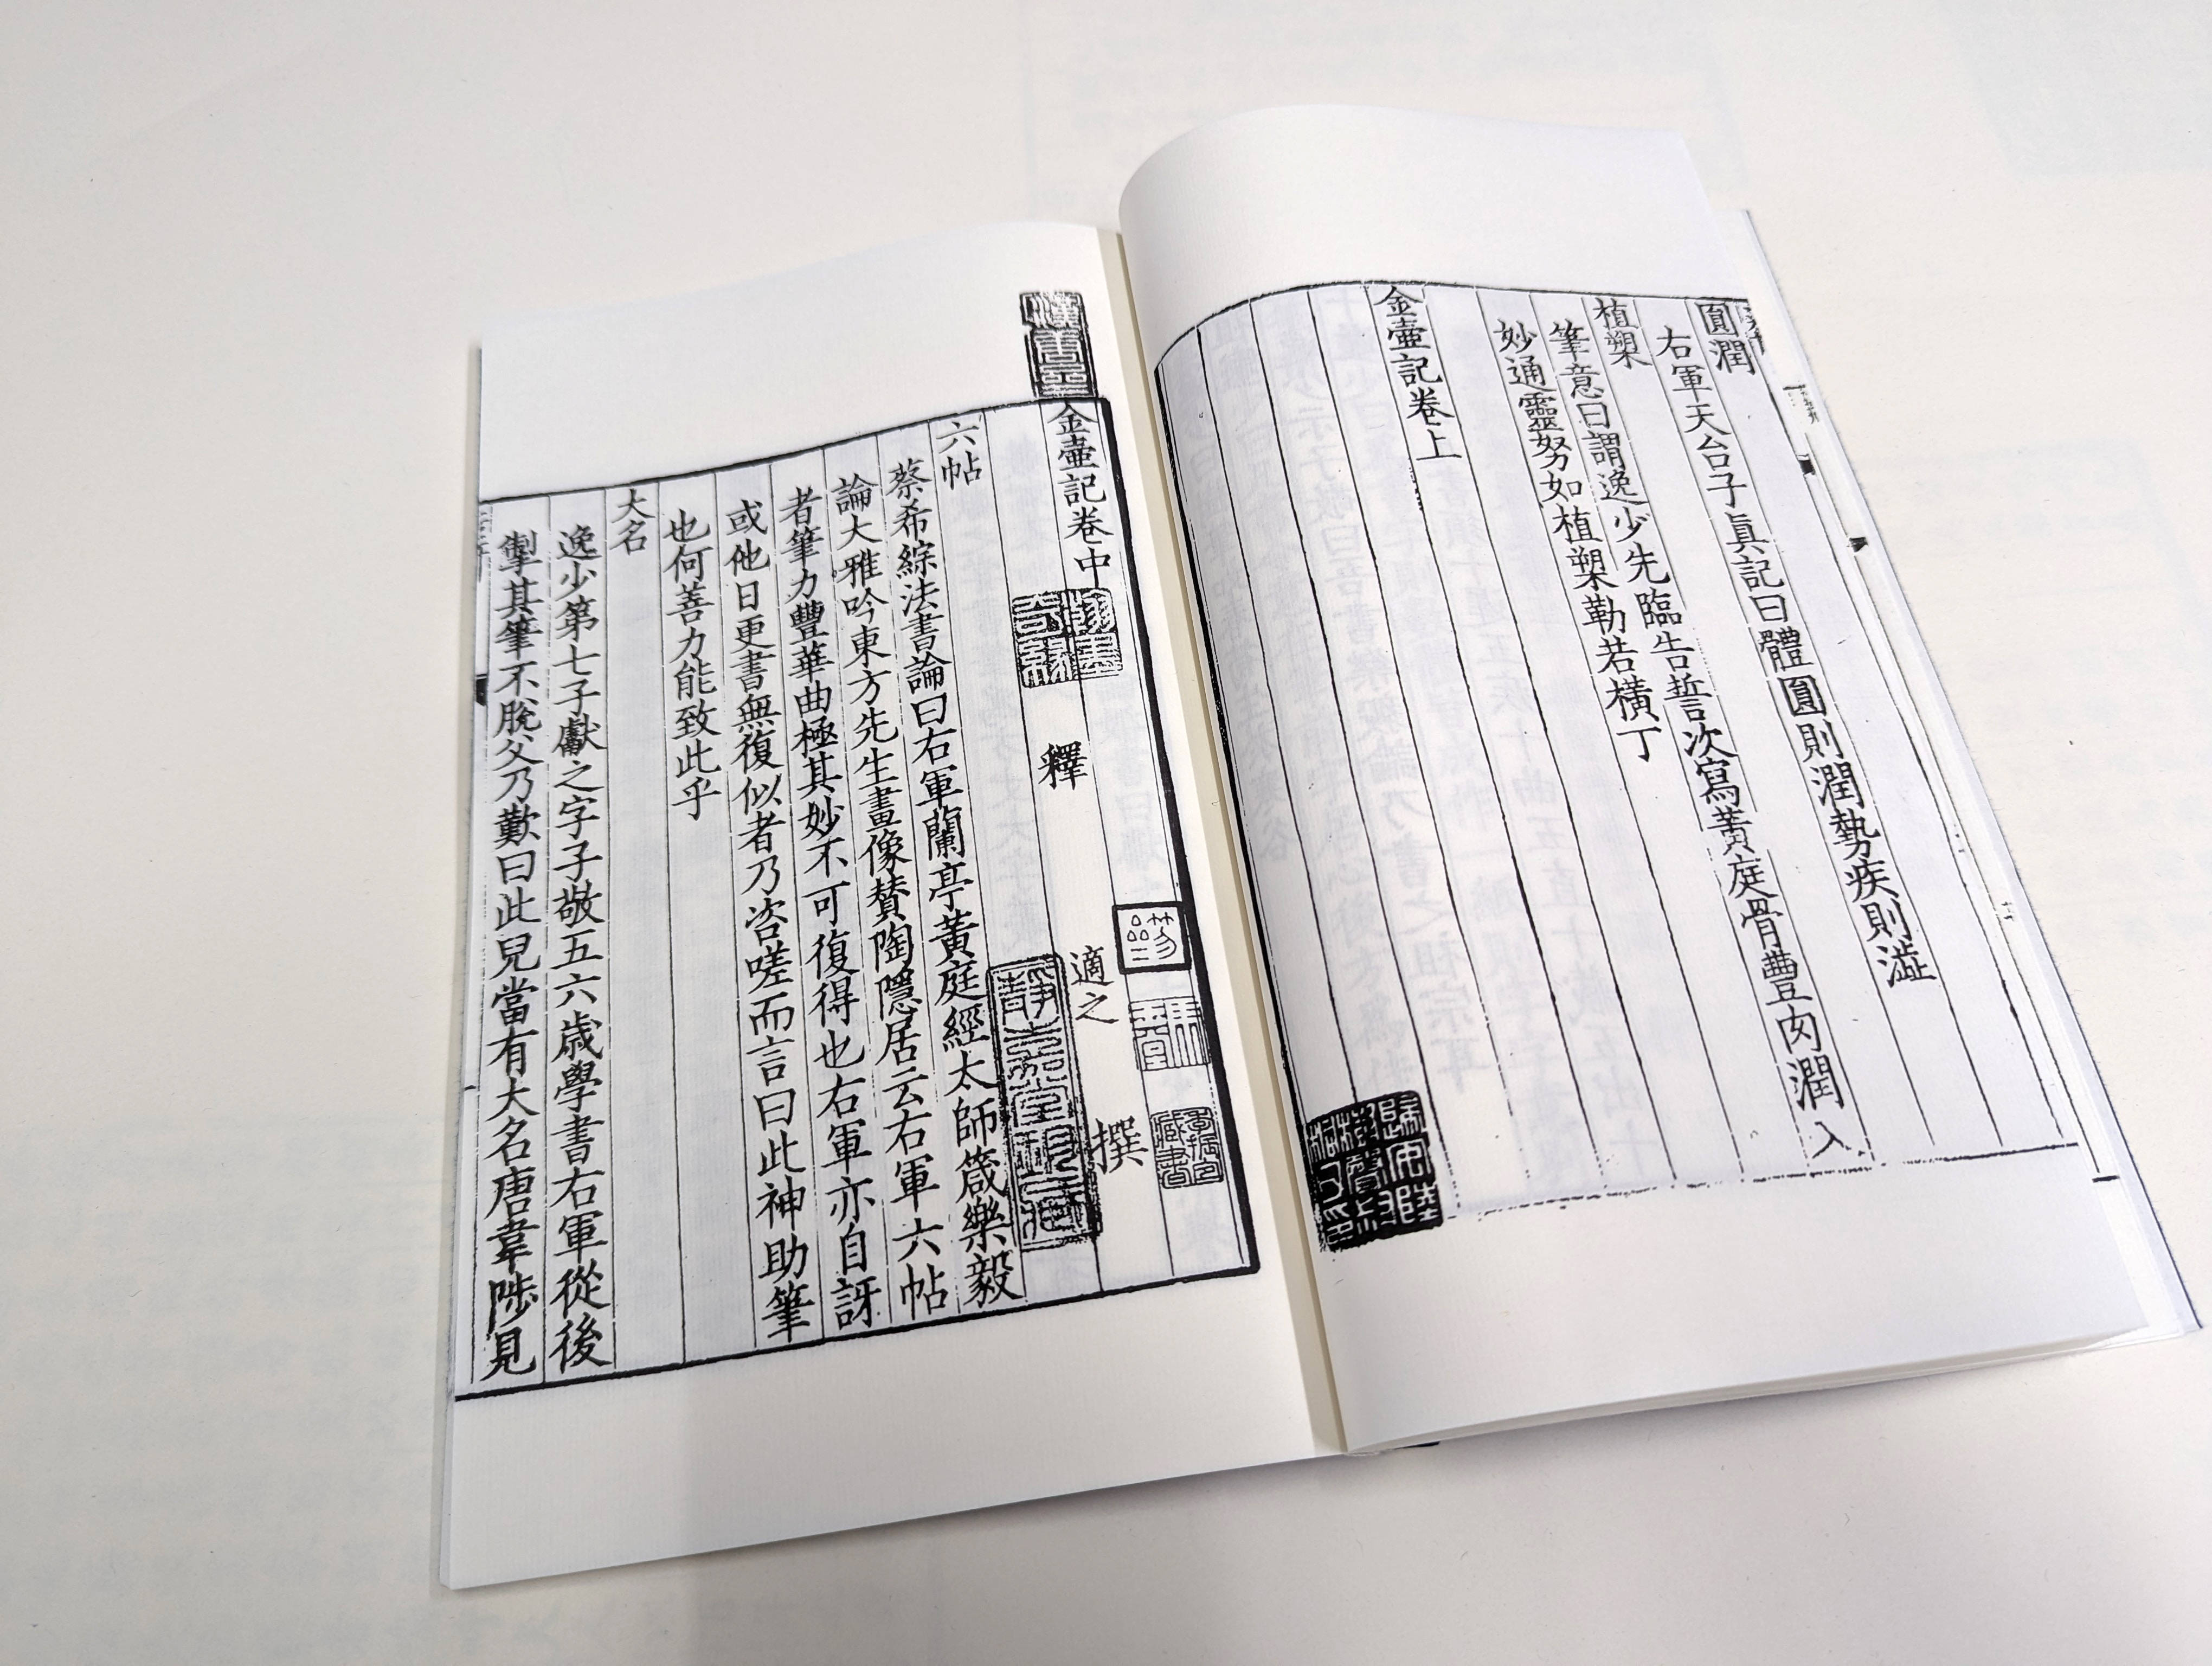 圓潤
右軍天台子眞記曰體圓則潤勢疾則澁
植槊
筆意曰謂逸少先臨告誓次寫黃庭骨豐肉潤入
妙通靈努如植槊勒若橫丁
金壷記卷上
金壷記卷中
釋適之撰
六帖
蔡希綜法書論曰右軍蘭亭黃庭經太師箴樂毅
論大雅吟東方先生畫像賛陶隱居云右軍六帖
者筆力豐華曲極其妙不可復得也右軍亦自訝
或他日更書無復似者乃咨嗟而言曰此神助筆
也何善力能致此乎
大名
逸少第七子獻之字子敬五六歲學書右軍從後
掣其筆不脫父乃歎曰此兒當有大名唐韋陟見
翰墨奇緣
靜嘉堂珍藏